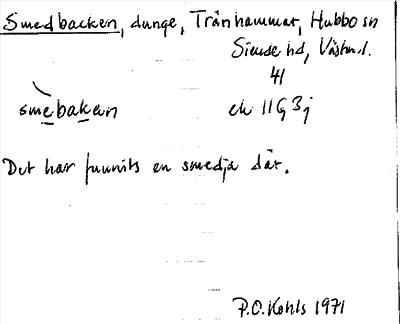 Smedbacken, dunge, Tränhammar, Hubbo sn
Siende hd, Västm.l.
41
smebaken ek 11G 3j
Det har funnits en smedja där.
P.O. Kohls 1971